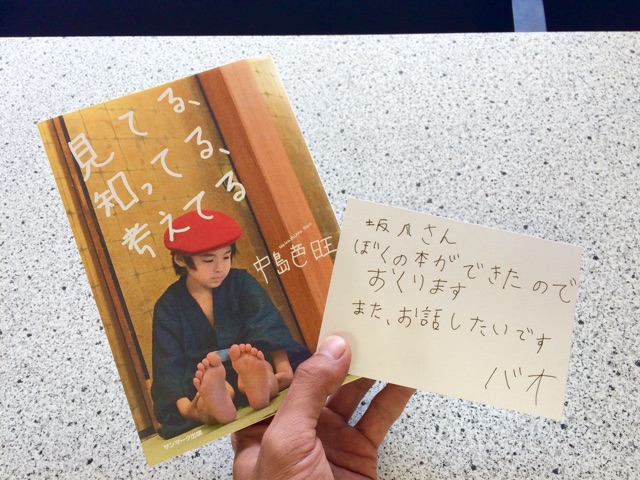 見てる、
知ってる、
考えてる
中島芭旺
サンマーク出版
坂爪さん
ぼくの本ができたので
おくります
また、お話したいです
バオ